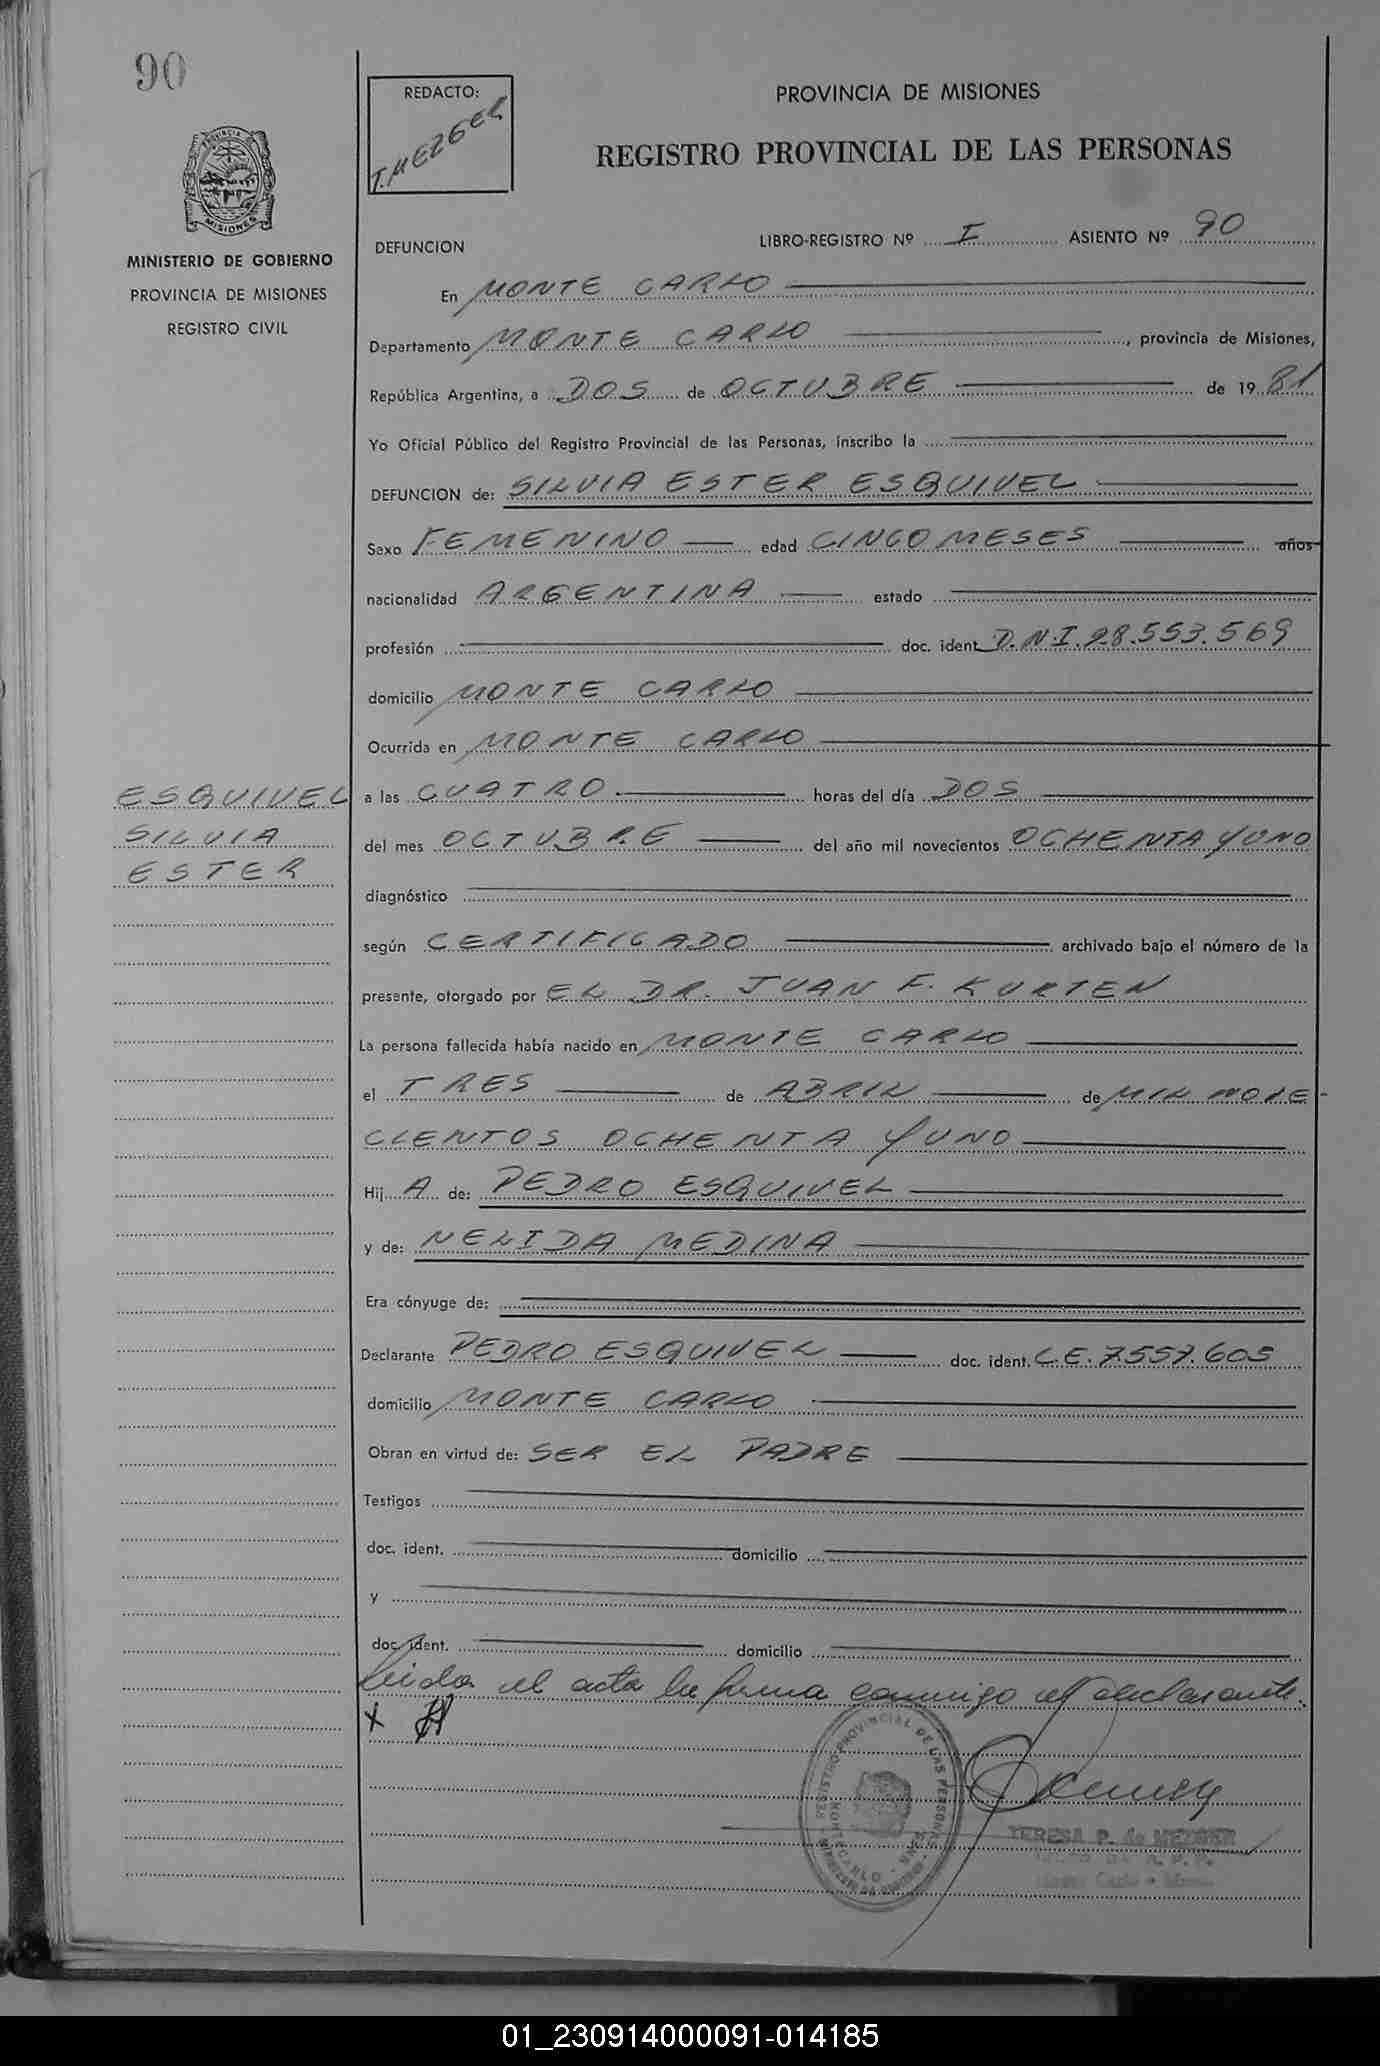 90
REDACTO:
T. MEZGER
PROVINCIA DE MISIONES
REGISTRO PROVINCIAL DE LAS PERSONAS
PROVINCIA
MISIONES
MINISTERIO DE GOBIERNO
PROVINCIA DE MISIONES
REGISTRO CIVIL
DEFUNCION
LIBRO-REGISTRO Nº I ASIENTO Nº 90
En MONTE CARLO
Departamento MONTE CARLO, provincia de Misiones,
República Argentina, a DOS de OCTUBRE de 1981
Yo Oficial Público del Registro Provincial de las Personas, inscribo la
DEFUNCION de: SILVIA ESTER ESQUIVEL
Sexo FEMENINO edad CINCO MESES años
nacionalidad ARGENTINA estado
profesión doc. ident. D.N.I. 28.553.569
domicilio MONTE CARLO
Ocurrida en MONTE CARLO
ESQUIVEL
SILVIA
ESTER
a las CUATRO horas del día DOS
del mes OCTUBRE del año mil novecientos OCHENTA Y UNO
diagnóstico
según CERTIFICADO archivado bajo el número de la
presente, otorgado por EL DR. JUAN F. KURTEN
La persona fallecida había nacido en MONTE CARLO
el TRES de ABRIL de MIL NOVE-
CIENTOS OCHENTA Y UNO
Hij A de: PEDRO ESQUIVEL
y de: NELIDA MEDINA
Era cónyuge de:
Declarante PEDRO ESQUIVEL doc. ident. C.E. 7.557.605
domicilio MONTE CARLO
Obran en virtud de: SER EL PADRE
Testigos
doc. ident. domicilio
y
doc. ident. domicilio
Leida el acta la firma conmigo el declarante.
X
REGISTRO PROVINCIAL DE LAS PERSONAS
MONTECARLO - MNES.
TERESA P. de MEZGER
Monte Carlo - Mnes.
01_230914000091-014185